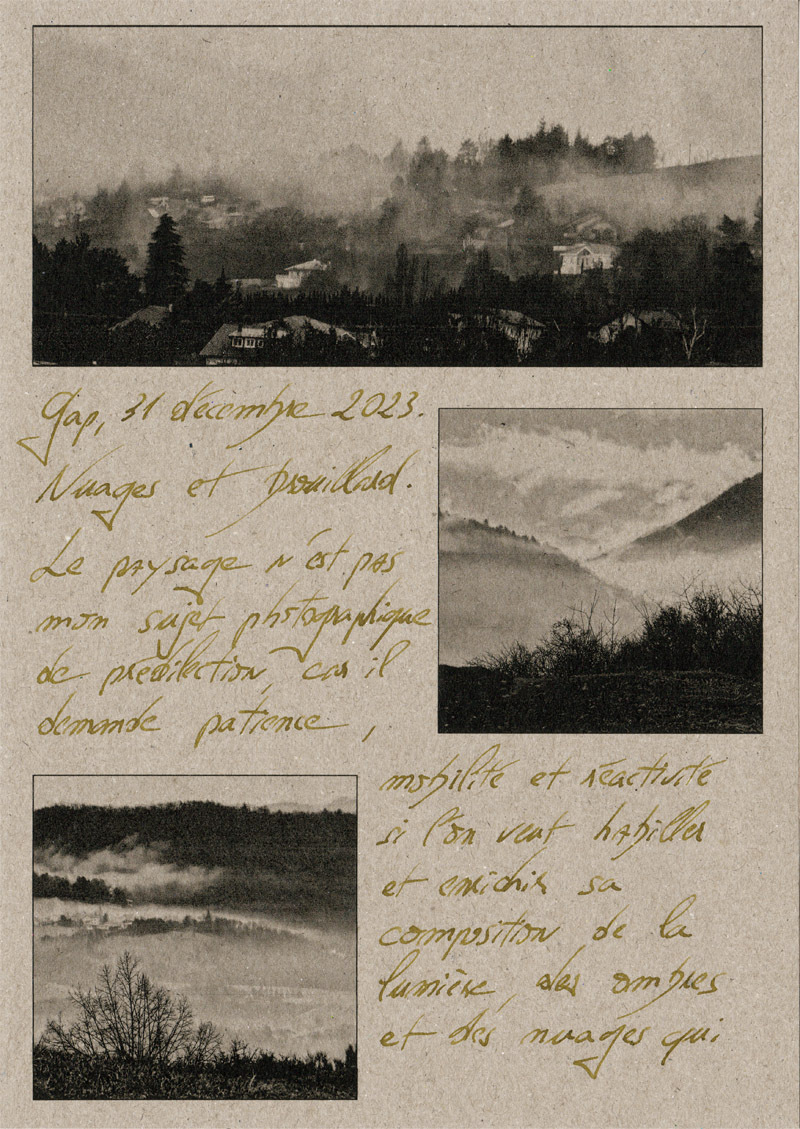 Gap, 31 décembre 2023.
Nuages et brouillard.
Le paysage n'est pas
mon sujet photographique
de prédilection, car il
demande patience,
mobilité et réactivité
si l'on veut habiller
et enrichir sa
composition de la
lumière, des ombres
et des nuages qui